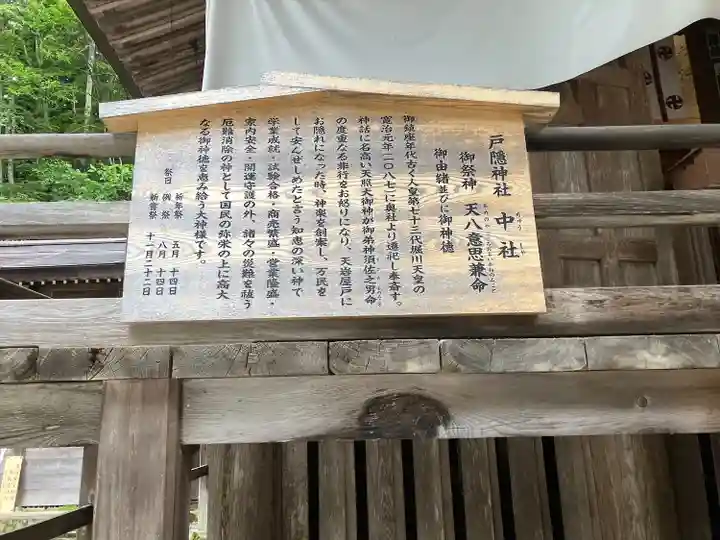 戸隠神社 中社
御祭神 天八意思兼命
御由緒並びに御神徳
御鎮座年代古く人皇第七十三代堀川天皇の
寛治元年一〇八七に奥社より遷祀し奉斎す。
神話に名高い天照大御神が御弟神須佐之男命
の度重なる非行をお怒りになり、天岩屋戸に
お隠れになった時、神楽を創案し、万民を
して安んぜしめたと言う知恵の深い神で
学業成就・試験合格・商売繁盛・営業隆盛・
家内安全・開運守護の外、諸々の災難を祓う
厄難消除の神として国民の弥栄の上に高大
なる御神徳を恵み給う大神様です。
祭日
祈年祭 五月 十四日
例祭 八月 十四日
新嘗祭 十一月二十二日